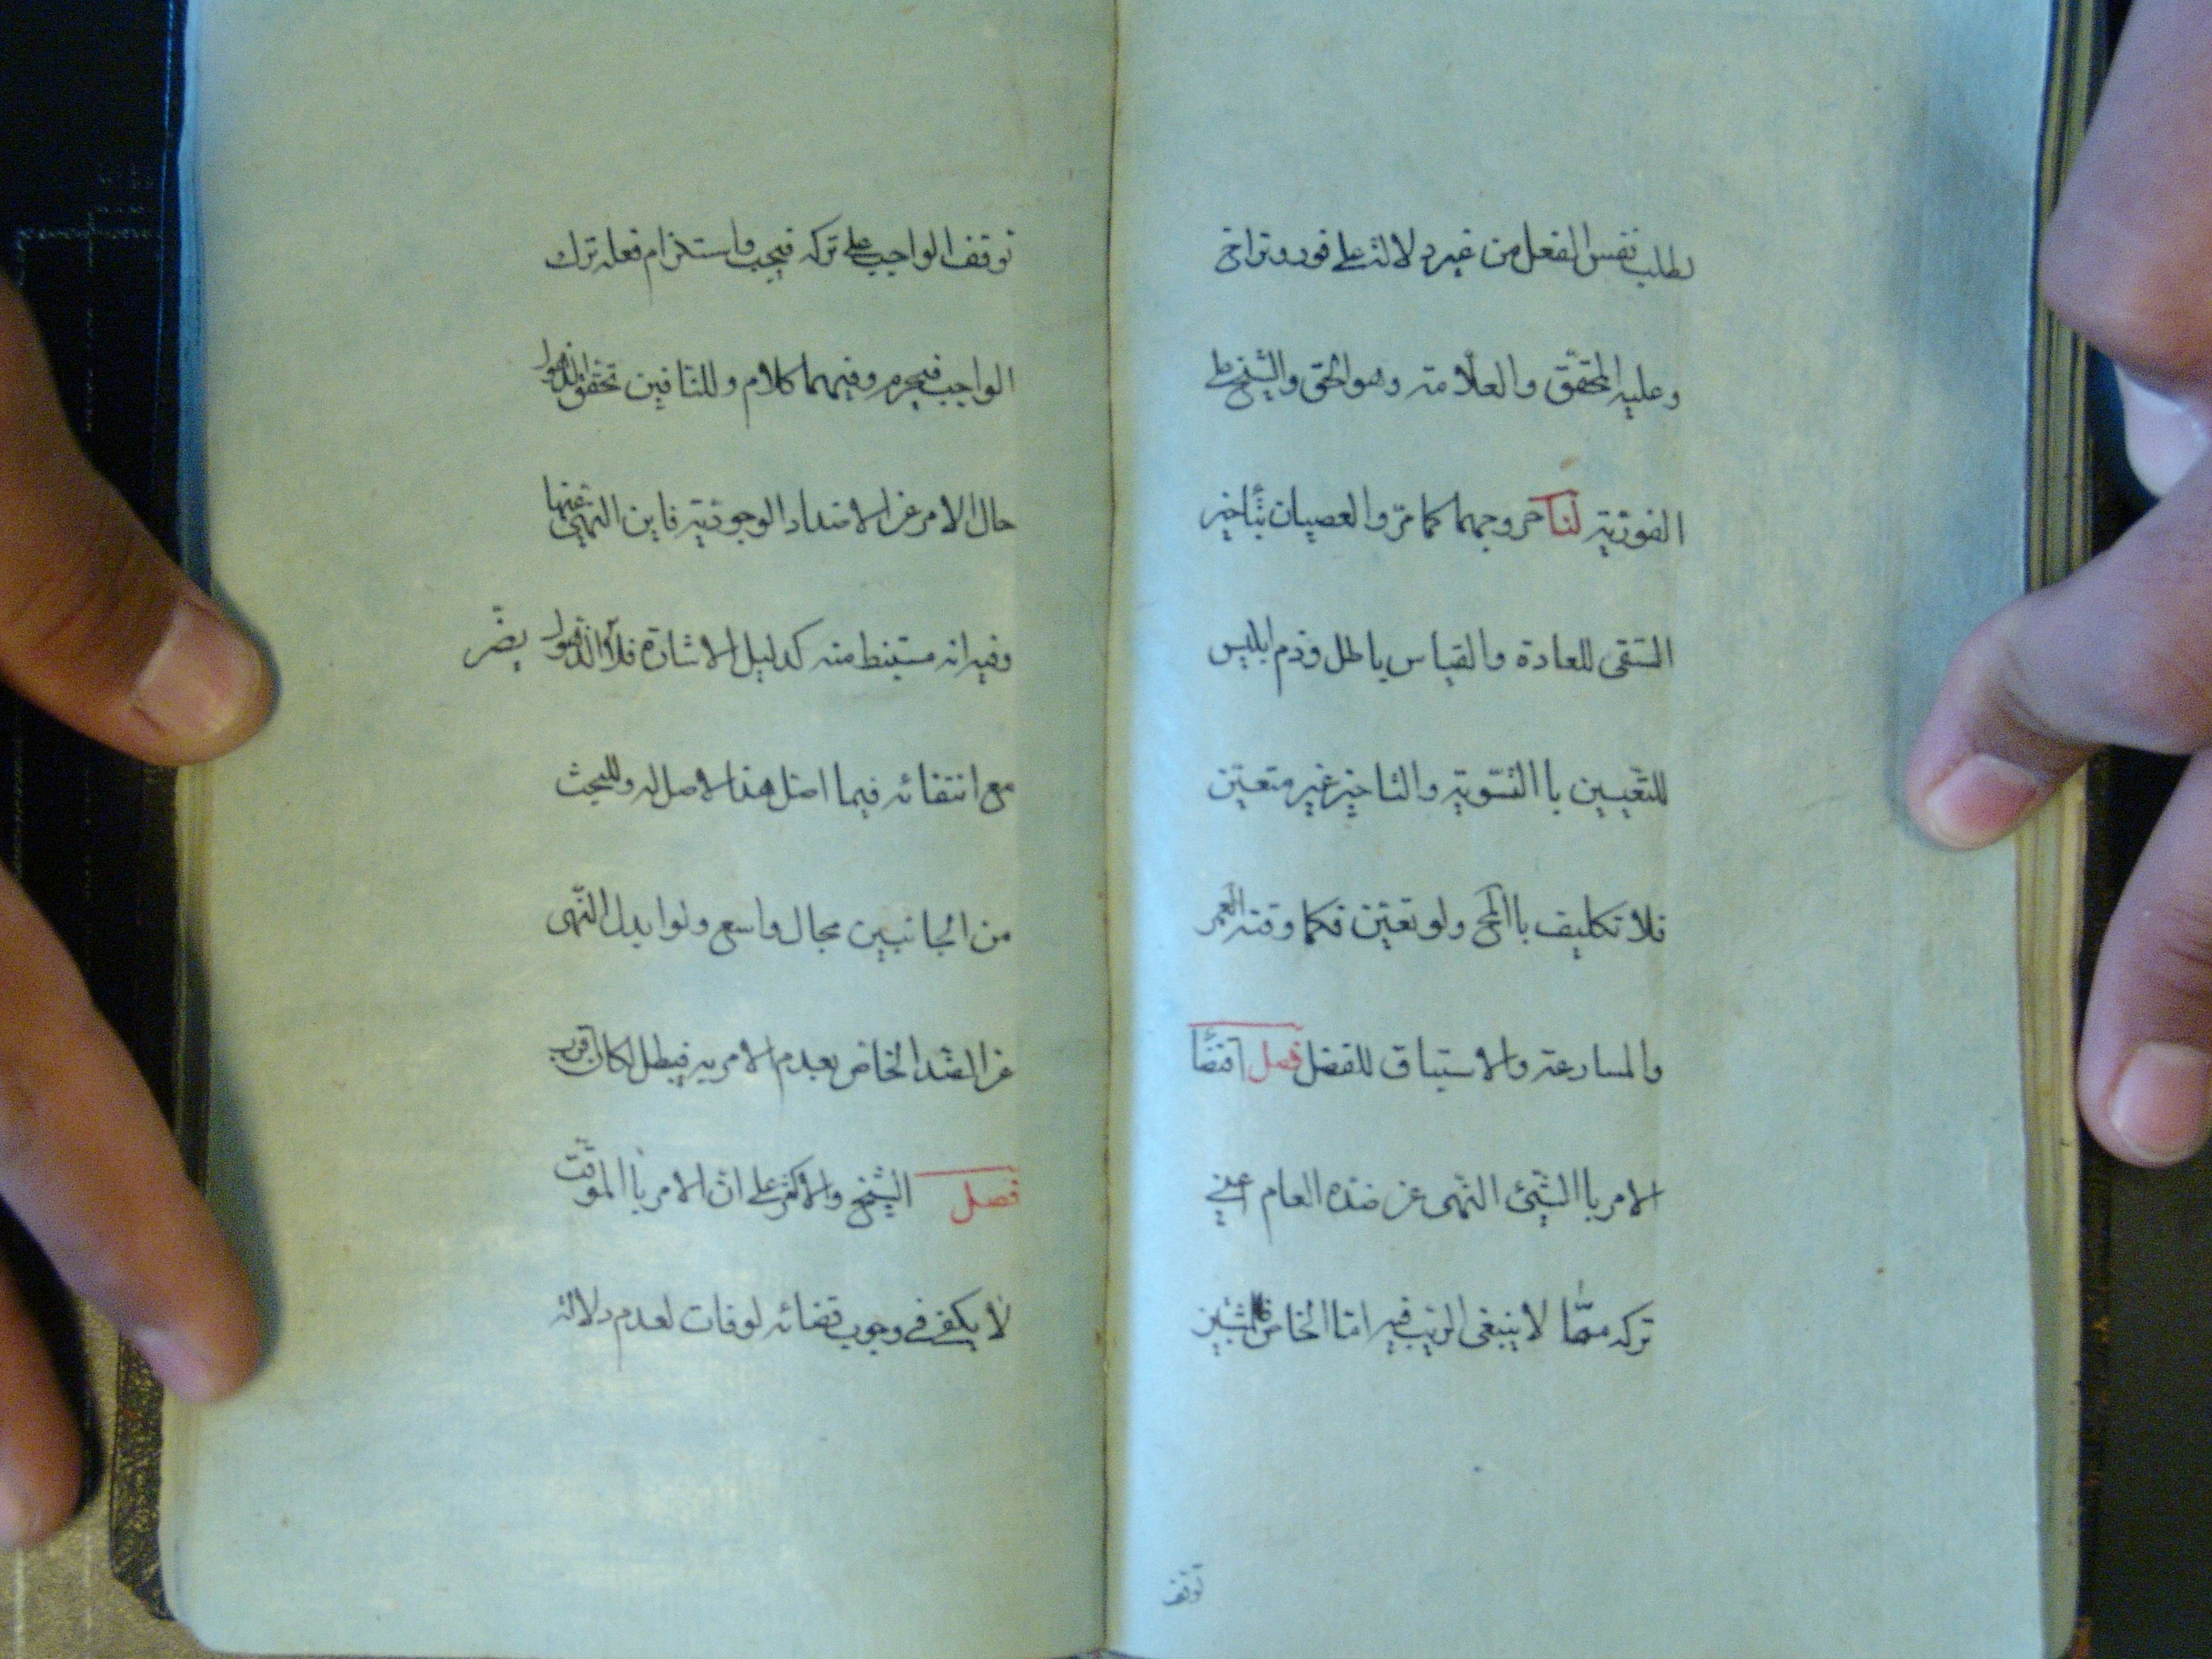 لطلب نفس الفعل من غير دلالة على فور وتراخ
وعليه المحقق والعلامة وهو الحق والشيخ على
الفورية لنا خروجهما كما مرّ والعصيان بتأخير
السقى للعادة والقياس باطل وذم ابليس
للتعيين باالتسوية والتاخير غير متعين
فلا تكليف باالمح ولو تعين فكما وقته العمر
والمسارعة والاستباق للفضل فصل اقتضاء
الامر باالشيئ النهى عن ضده العام اعني
تركه ممّا لا ينبغى الريب فيه امّا الخاص فللمثبتين
توقف
توقف الواجب على تركه فيجب واستلزام فعله ترك
الواجب فيحرم وفيهما كلام وللنافين تحقق الذهول
حال الامر عن الاضداد الوجودية فاين النهى عنها
وفيه انه مستنبط منه كدليل الاشارة فلا الذهول يضرّ
مع انتفائه فيما اصل هذا الاصل له وللبحث
من الجانبين مجال واسع ولو ابدل النّهى
عن الضد الخاص بعدم الامر به فيبطل لكان اقرب
فصل الشيخ والاكثر على انّ الامر باالموقّت
لا يكفى في وجوب قضائه لو فات لعدم دلالة